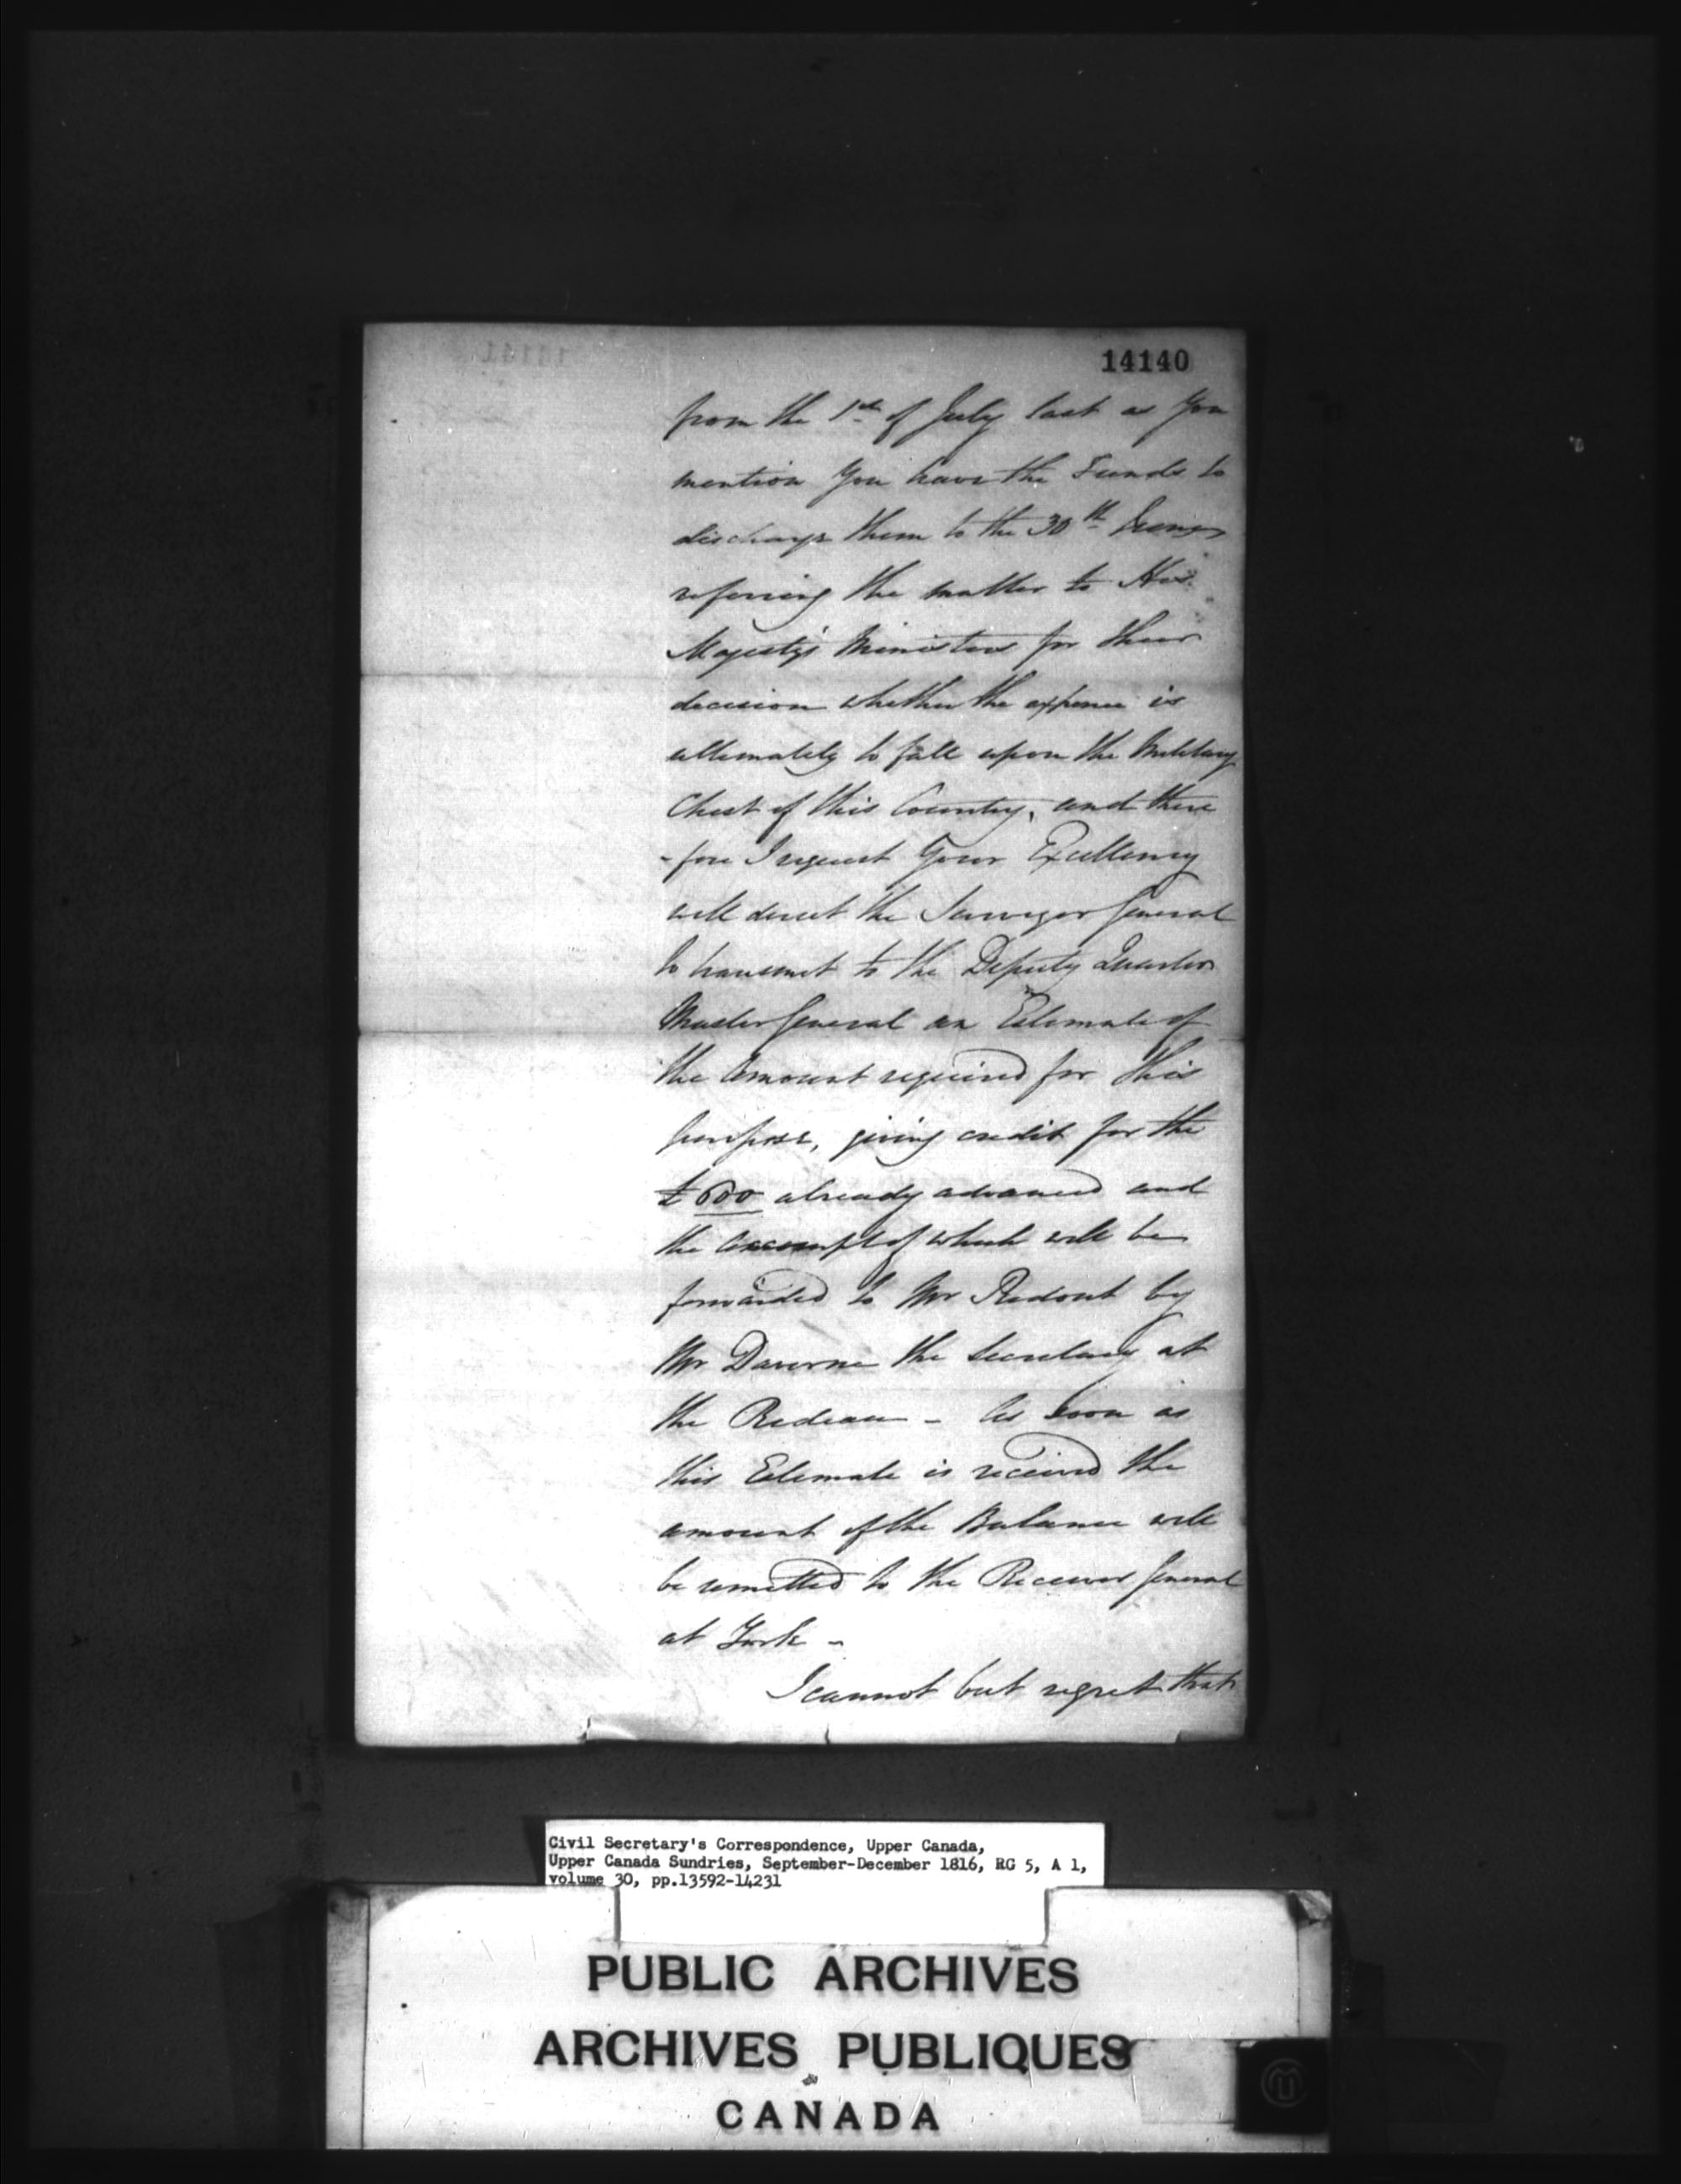 14140
from the 1st of July last as you
mention you have the Funds to
discharge them to the 30th June,
referring the matter to His
Majesty's Ministers for their
decision whether the expence is
ultimately to fall upon the Military
Chest of this Country, and there
-fore I request Your Excellency
will direct the Surveyor General
to transmit to the Deputy Quarter
Master General an Estimate of
the amount required for this
purpose, giving credit for the
£600 already advanced and
the Accompt of which will be
forwarded to Mr Ridout by
Mr Daverne the Secretary at
the Rideau - As soon as
this Estimate is received the
amount of the Balance will
be remitted to the Receiver General
at York -
I cannot but regret that
Civil Secretary's Correspondence, Upper Canada,
Upper Canada Sundries, September-December 1816, RG 5, A 1,
volume 30, pp.13592-14231
PUBLIC ARCHIVES
ARCHIVES PUBLIQUES
CANADA